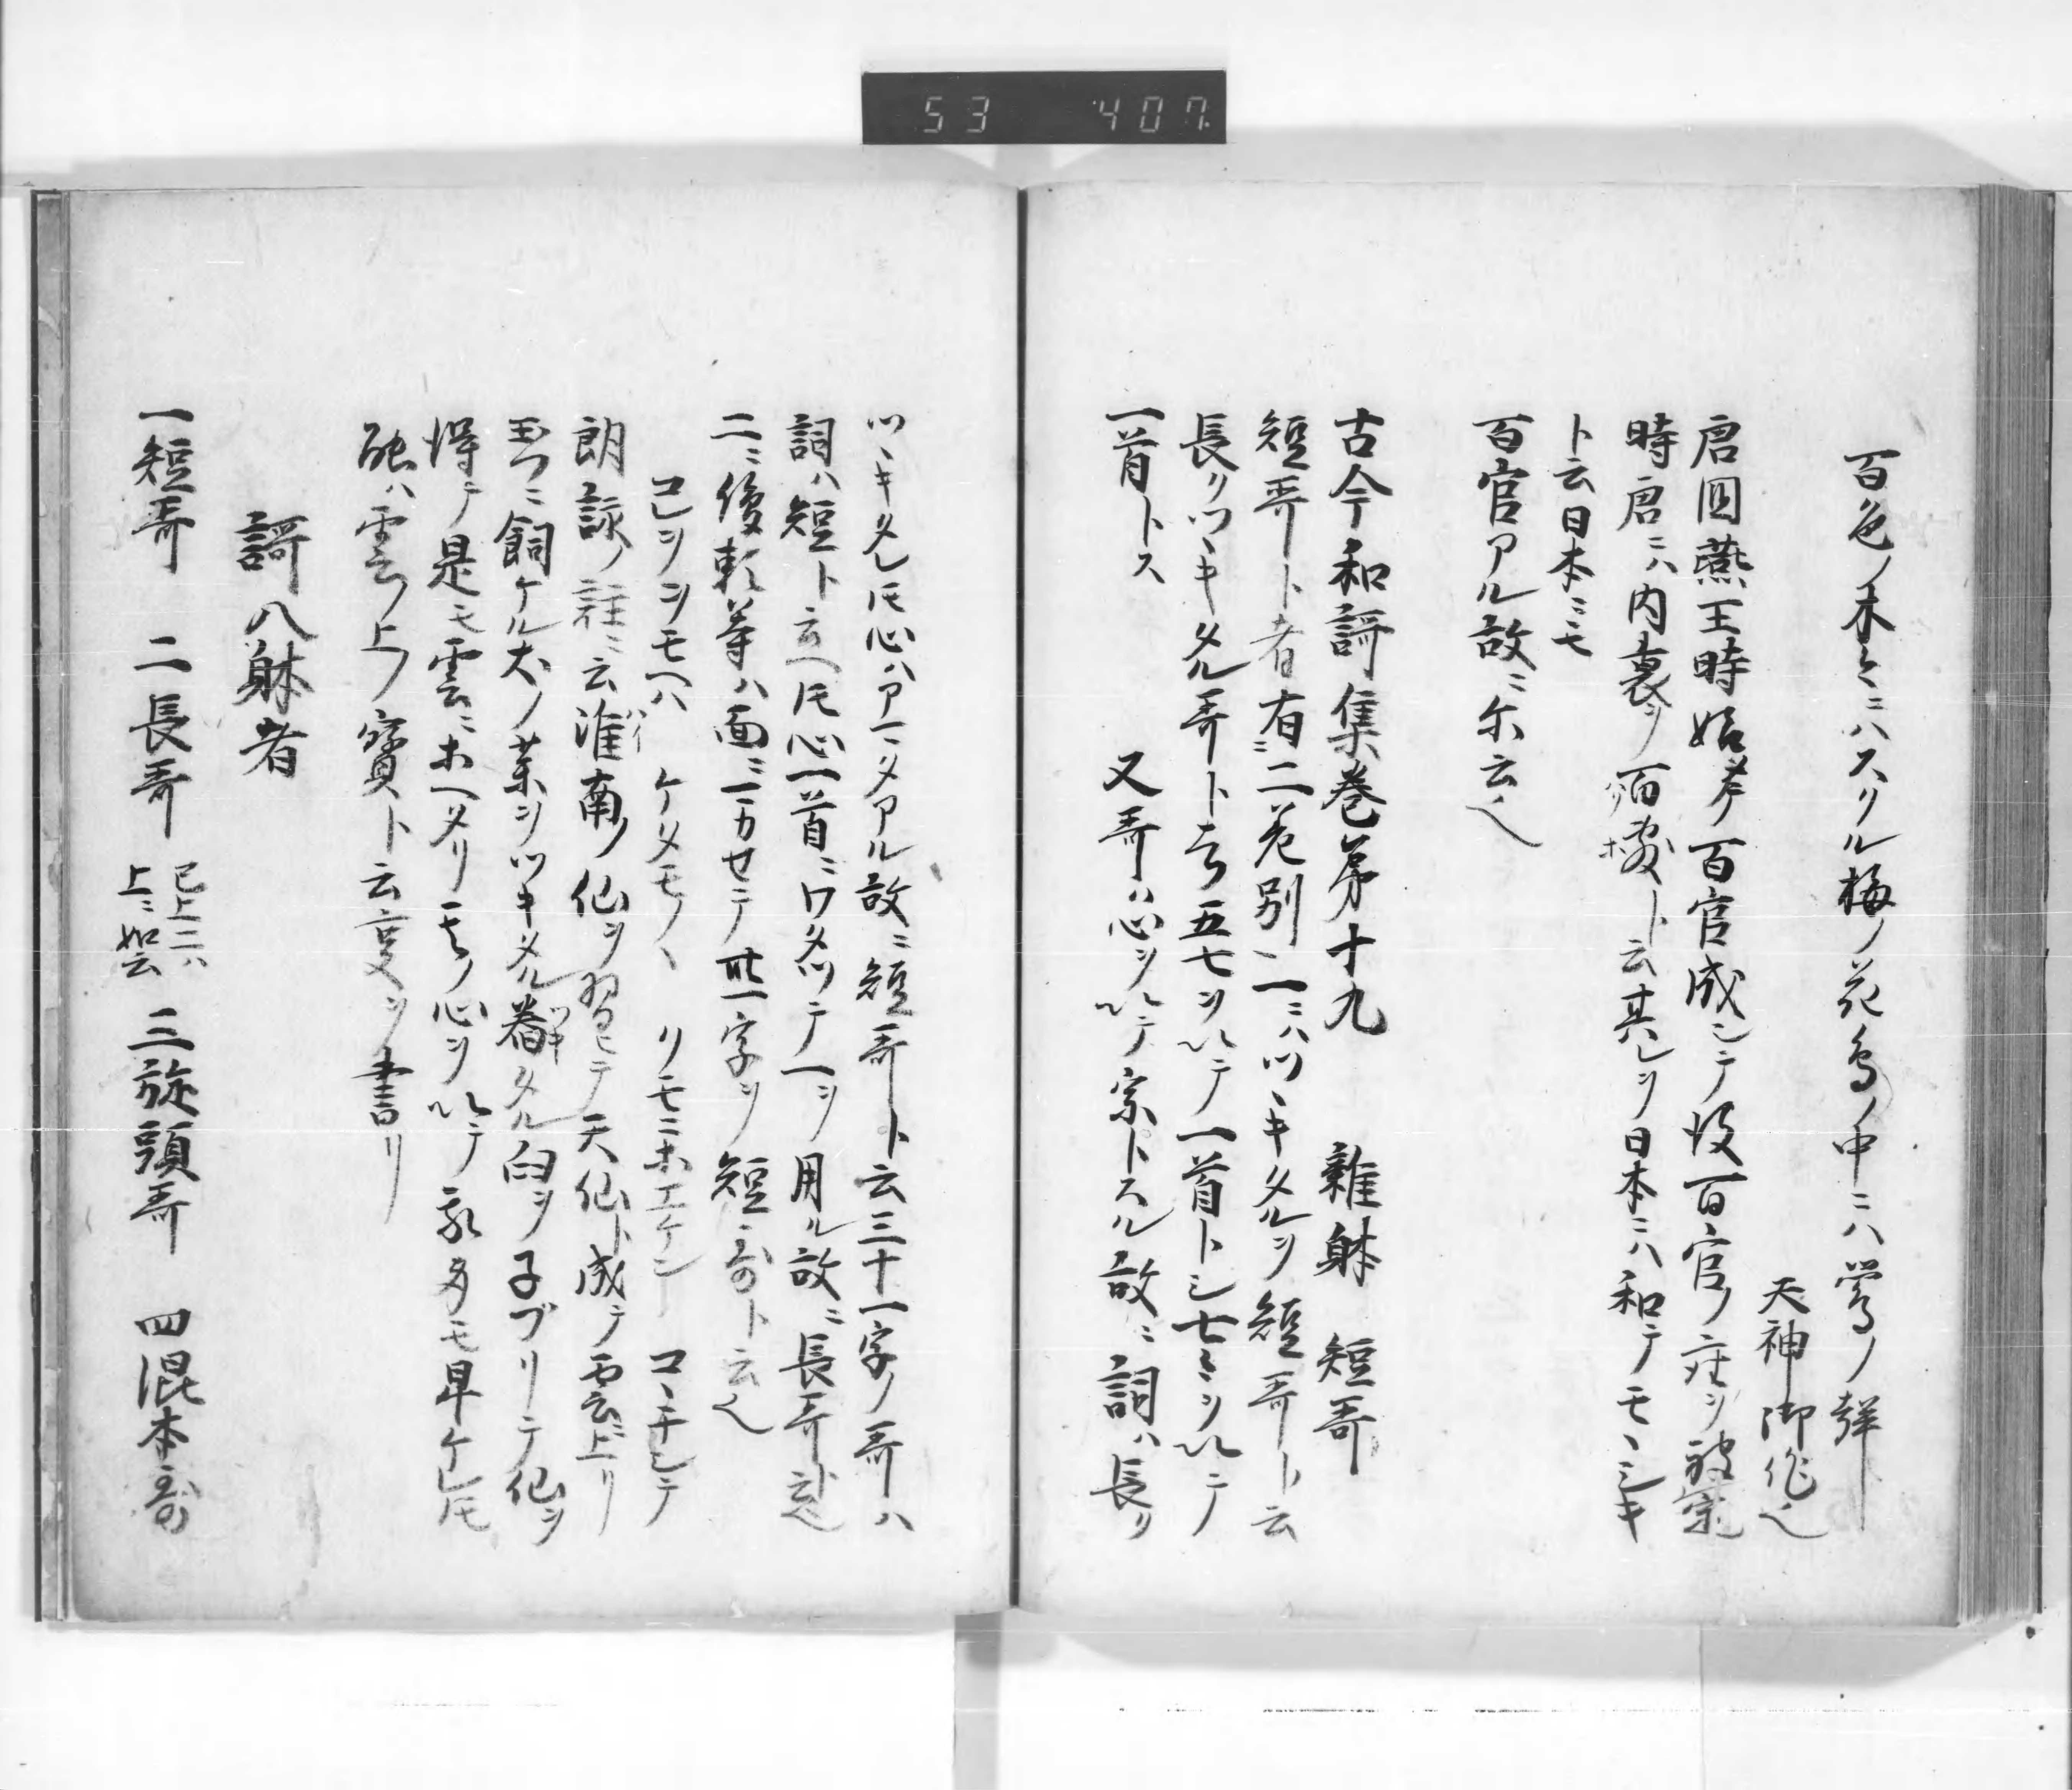 53 407
百色ノ木々ニハスクル梅ノ花鳥ノ中ニハ鶯ノ聲
天神御作也
唐国燕王時始テ百官成シテ後百官ノ座ヲ被定
時唐ニハ内裏ヲ百敷ト云其レヲ日本ニハ和テモヽシキ
ト云日本ニモ
百官アル故ニ尓云也
古今和謌集巻第十九 雜躰 短哥
短哥ト者有ニ二差別一ニハツヽキタルヲ短哥ト云
長クツヽキタル哥ト云五七ヲ以テ一首トシ七々ヲ以テ
一首トス 又哥ハ心ヲ以テ宗トスル故ニ詞ハ長ク
ツヽキタレ圧心ハアマタアル故ニ短哥ト云三十一字ノ哥ハ
詞ハ短ト云ヘ圧心一首ニワタツテ一ヲ用ル故ニ長哥ト云
二ニ俊頼等ハ面ニマカセテ卅一字ヲ短哥ト云也
コレヲヲモヘハ ケタモノヽ クモニホエケン コヽチシテ
朗詠ノ註ニ云淮南ノ仙ヲ習ヒテ天仙ト成テ雲ニ上リ
玉フニ飼ケル犬ノ薬ヲツキタル舂タル臼ヲ子ブリテ仙ヲ
得テ是モ雲ニホヘタリ其ノ心ヲ以テ我身モ卑ケレ圧
縦ハ雲ノ上ノ寳ト云事ヲ書リ
謌八躰者
一短哥 二長哥 已上二ハ
上ニ如云 三旋頭哥 四混本哥